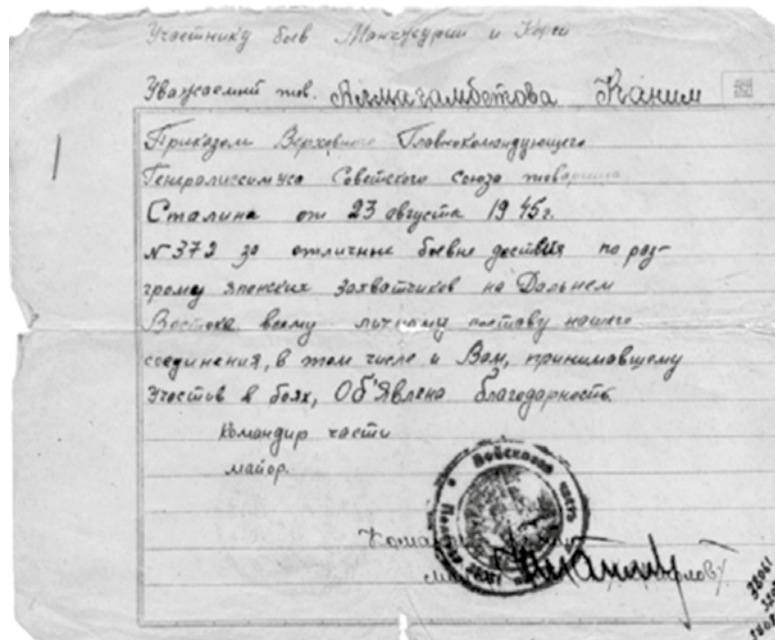 Участнику боев Манчжурии и Кореи
Уважаемый тов. Алмагамбетова Каким
Приказом Верховного Главнокомандующего
Генералиссимуса Советского Союза товарища
Сталина от 23 августа 1945г.
N 372 за отличные боевые доствия по раз-
грому японских захватчиков на Дальнем
Востоке всему личному составу нашего
соединения, в том числе и Вам, принимавшему
участив в боях, Об'явлена благодарность
командир части
майор.
Войсковая часть